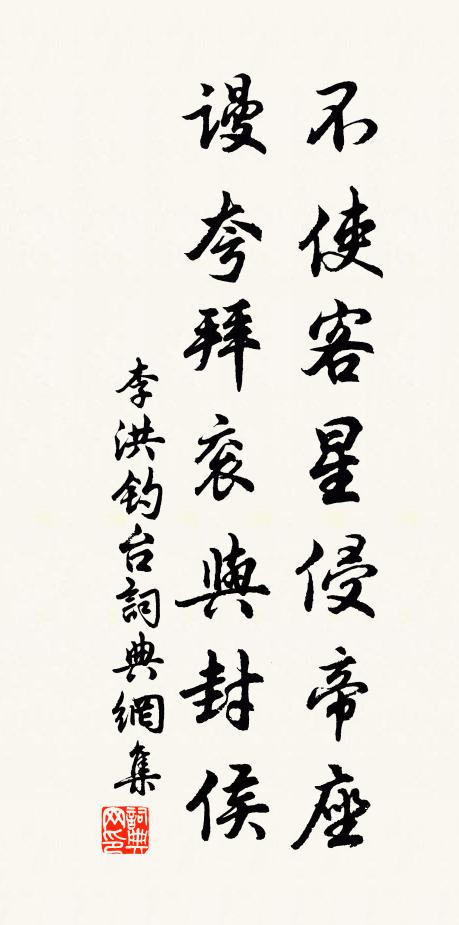 不使客星侵帝座
谩夸拜衮與封侯
李洪钓台詞典網集
詞典网印